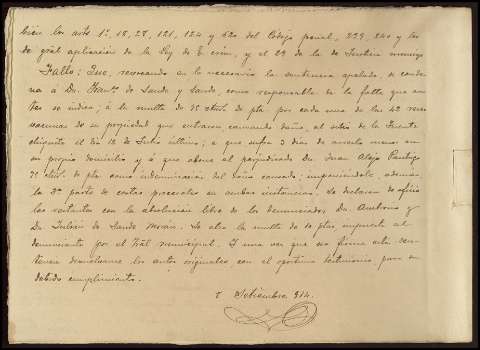 bien los arts 1º, 18, 27, 121, 124 y 620 del Código penal, 239, 240 y los
de gral aplicación de la Ley de E. crim, y el 29 de la de Justicia municipal
Fallo: Que, revocando en lo necesario la sentencia apelada, se conde
na á Dn. Franco de Lande y Lande, como responsable de la falta que an
tes se indica, á la multa de 75 cént. de pta por cada una de las 42 reses
vacunas de su propiedad que entraron causando daño, al sitio de la Fuente
chiquita el día 12 de Julio último; á que sufra 3 días de arresto menor en
su propio domicilio y á que abone al perjudicado Dn. Juan Alejo
75 cént. de pta como indemnización del daño causado; imponiéndole, además,
la 3ª parte de costas procesales en ambas instancias. Se declaran de oficio
las restantes con la absolución libre de los denunciados Dn. Ambrosio y
Dn. Julián de Lande Morán. Se alza la multa de 10 ptas impuesta al
denunciante por el Tbal municipal. Y una vez que sea firme esta sen
tencia devuélvanse los autos originales, con el oportuno testimonio para su
debido cumplimiento.
Setiembre 914.